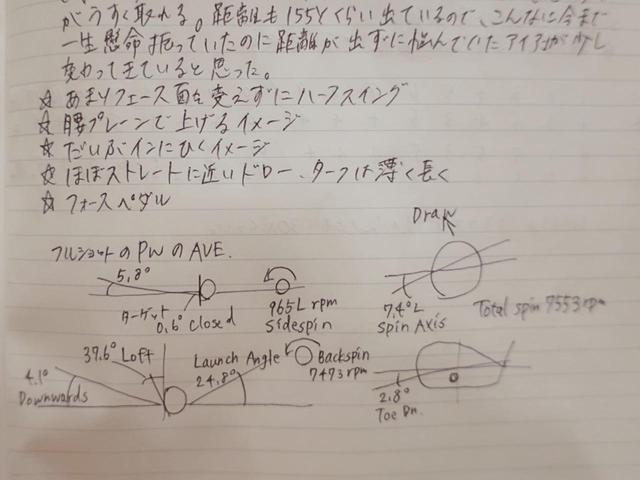 がうすく取れる。距離も155Yくらい出ているので、こんなに今まで
一生懸命振っていたのに距離が出ずに悩んでいたアイアンが少し
変わってきていると思った。
☆ あまりフェース面を変えずにハーフスイング
☆ 腰プレーンで上げるイメージ
☆ だいぶインにひくイメージ
☆ ほぼストレートに近いドロー、ターフは薄く長く
☆ フォースペダル
フルショットのPWのAVE.
5.8°
ターゲット
0.6° closed
965L rpm
Sidespin
Draw
7.4°L
Spin Axis
Total spin 7553rpm
4.1°
Downwards
37.6° Loft
Launch Angle
24.8°
Backspin
7473rpm
2.8°
Toe Dn.